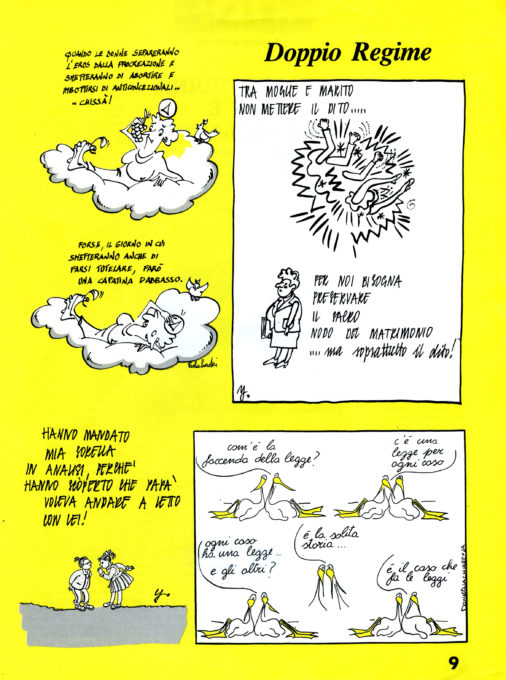 Doppio Regime
QUANDO LE DONNE SEPARERANNO
L'EROS DALLA PROCREAZIONE E
SMETTERANNO DI ABORTIRE E
IMBOTTIRSI DI ANTICONCEZIONALI...
... CHISSÀ!
FORSE, IL GIORNO IN CUI
SMETTERANNO ANCHE DI
FARSI TUTELARE, FARÒ
UNA CAPATINA DABBASSO.
TRA MOGLIE E MARITO
NON METTERE IL DITO.....
PER NOI BISOGNA
PRESERVARE
IL SACRO
NODO DEL MATRIMONIO
.... ma soprattutto il dito!
y.
HANNO MANDATO
MIA SORELLA
IN ANALISI, PERCHE'
HANNO SCOPERTO CHE PAPA'
VOLEVA ANDARE A LETTO
CON LEI!
y.
com'é la
faccenda della legge?
c'é una
legge per
ogni caso
ogni caso
ha una legge...
e gli altri?
é la solita
storia...
é il caso che
fa le leggi
9